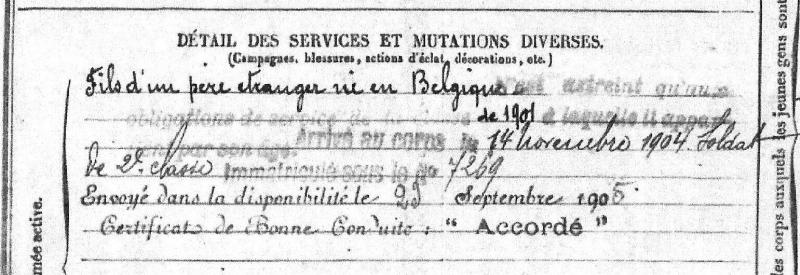 DÉTAIL DES SERVICES ET MUTATIONS DIVERSES.
(Campagnes, blessures, actions d'éclat, décorations, etc.)
Fils d'un père etranger né en Belgique. N'est astreint qu'aux
obligations de service de la classe de 1901 à laquelle il appar-
tient par son âge. Arrivé au corps le 14 novembre 1904. Soldat
de 2e classe Immatriculé sous le no 7269
Envoyé dans la disponibilité le 23 Septembre 1905
Certificat de Bonne Conduite : "Accordé"
mée active.
les corps auxquels les jeunes gens sont